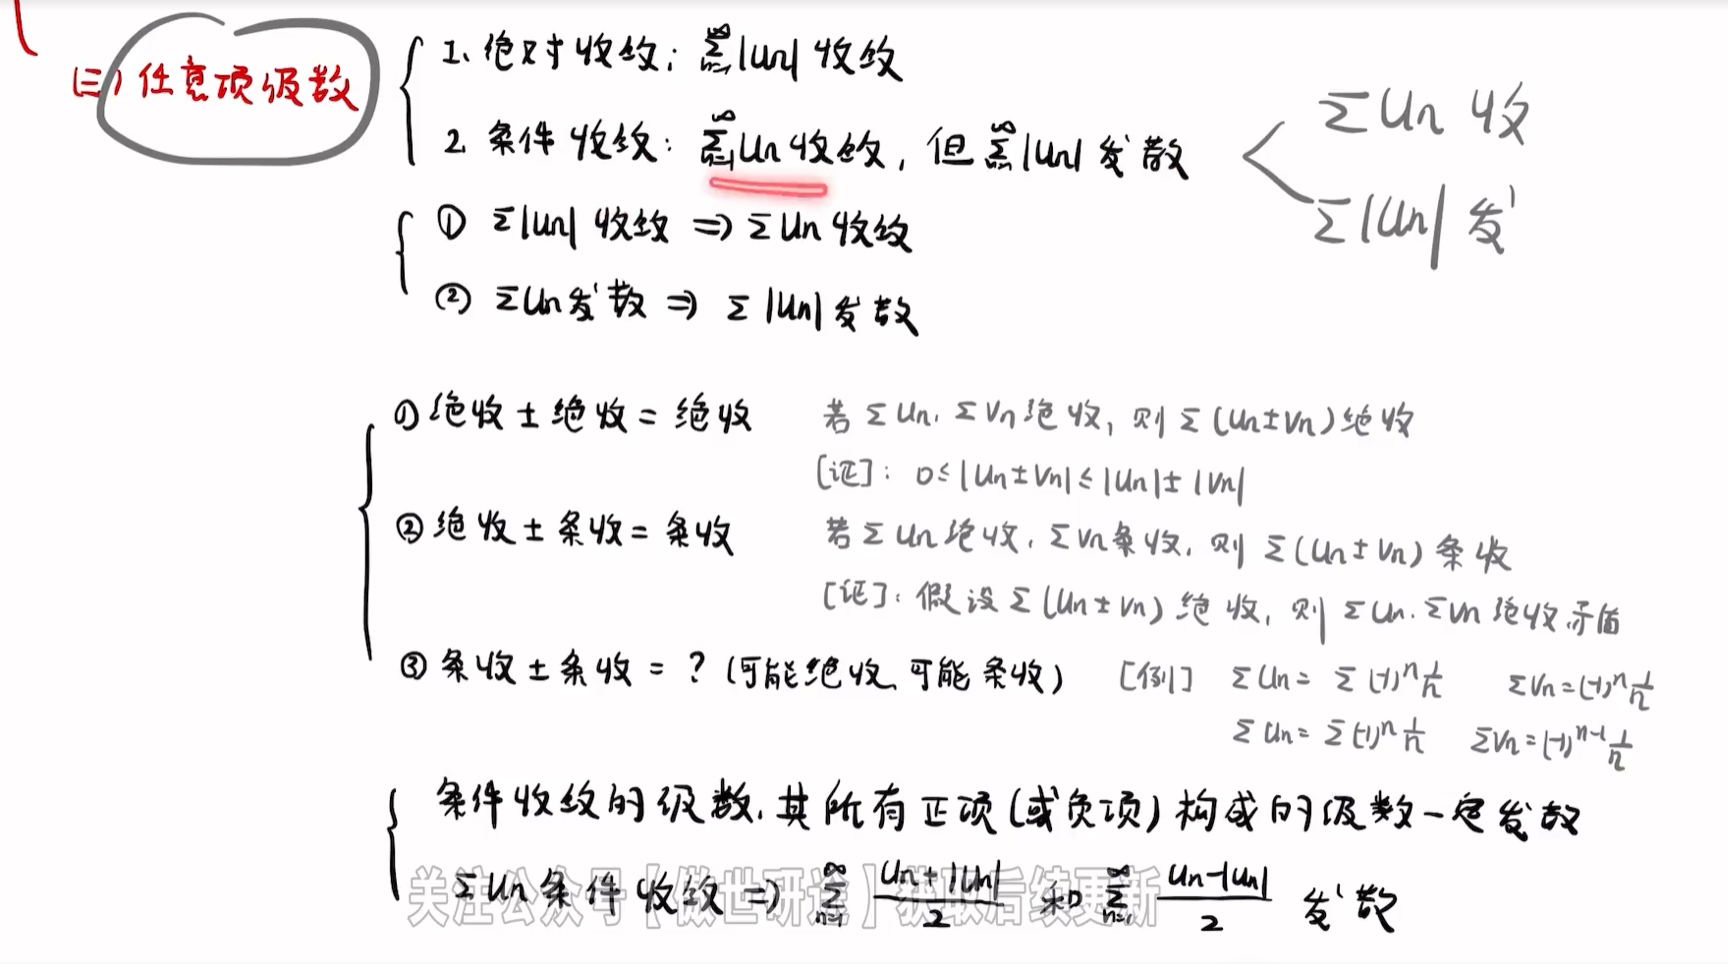 (三) 任意项级数
1. 绝对收敛: ∑_{n=1}^∞|Un| 收敛
2. 条件收敛: ∑_{n=1}^∞ Un 收敛, 但 ∑_{n=1}^∞|Un| 发散
∑Un 收
∑|Un| 发
① ∑|Un| 收敛 ⇒ ∑Un 收敛
② ∑Un 发散 ⇒ ∑|Un| 发散
① 绝收 ± 绝收 = 绝收 若∑Un. ∑Vn绝收, 则∑(Un±Vn)绝收
[证]: 0≤|Un±Vn|≤|Un|±|Vn|
② 绝收 ± 条收 = 条收 若∑Un绝收, ∑Vn条收, 则∑(Un±Vn)条收
[证]: 假设∑(Un±Vn)绝收, 则∑Un. ∑Vn绝收,矛盾
③ 条收 ± 条收 = ? (可能绝收、可能条收) [例] ∑Un = ∑(-1)^n 1/n ∑Vn=(-1)^n 1/n
∑Un = ∑(-1)^n 1/n ∑Vn=(-1)^{n-1} 1/n
条件收敛的级数, 其所有正项(或负项)构成的级数一定发散
∑Un 条件收敛 ⇒ ∑_{n=1}^∞ (Un+|Un|)/2 和 ∑_{n=1}^∞ (Un-|Un|)/2 发散
关注公众号【做世研途】获取后续更新